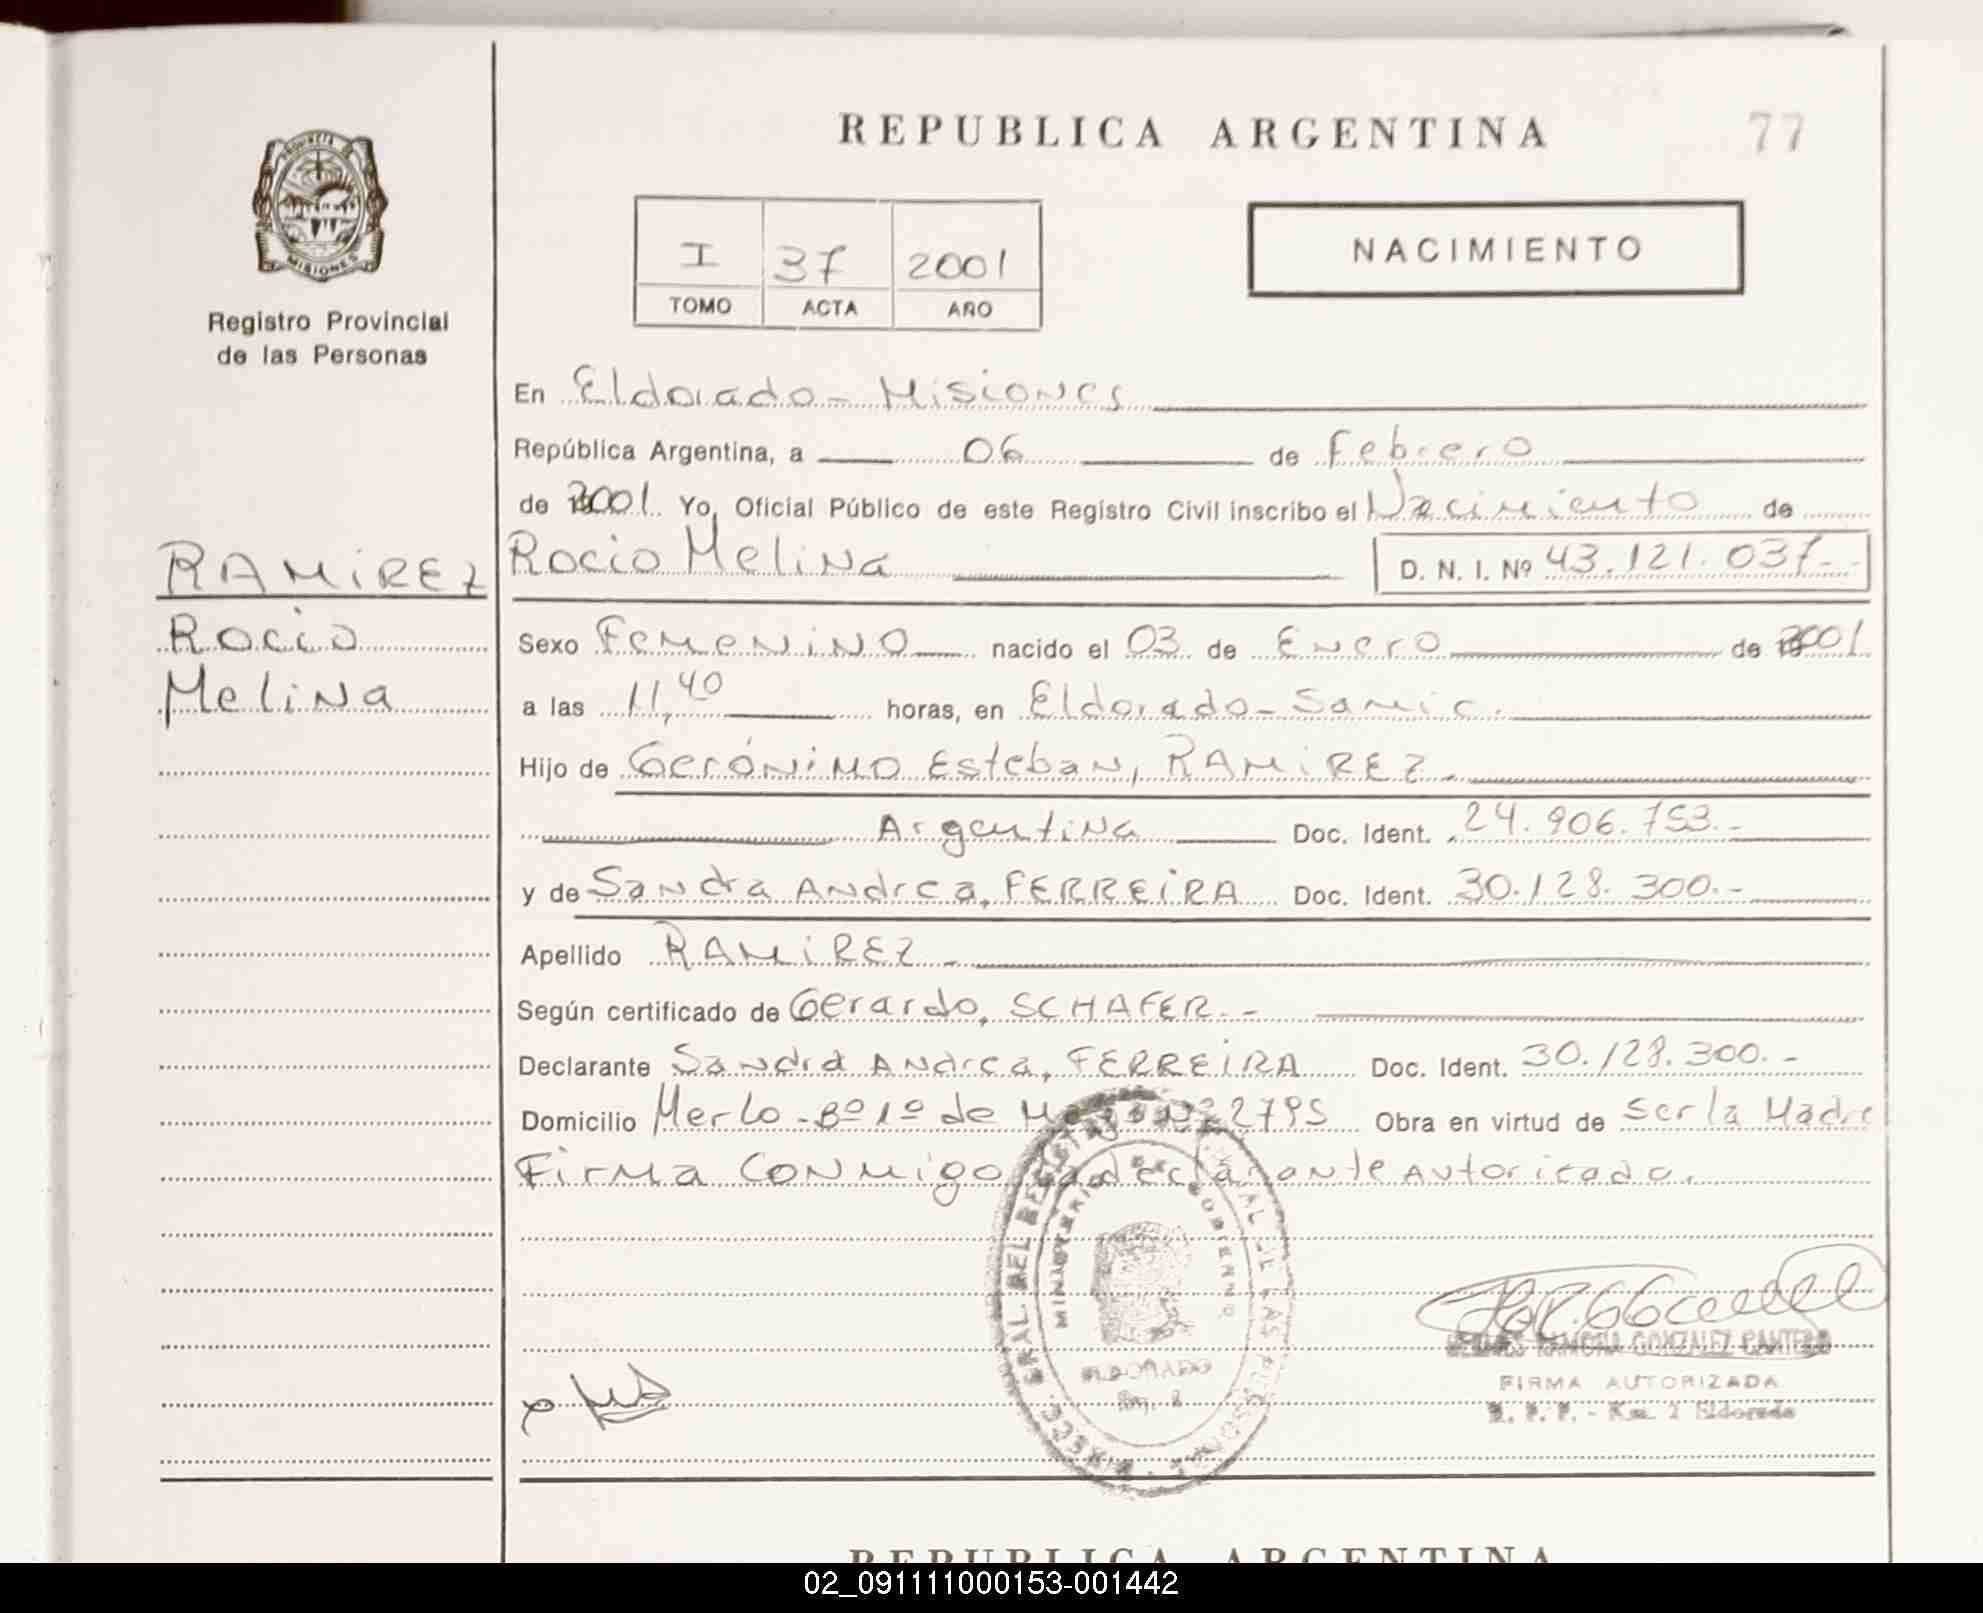 REPUBLICA ARGENTINA
77
PROVINCIA DE
MISIONES
Registro Provincial
de las Personas
I 37 2001
TOMO ACTA AÑO
NACIMIENTO
En Eldorado - Misiones
República Argentina, a 06 de Febrero
de 2001. Yo, Oficial Público de este Registro Civil inscribo el Nacimiento de
RAMIREZ
Rocio
Melina
Rocio Melina D. N. I. Nº 43.121.037.-
Sexo Femenino nacido el 03 de Enero de 2001
a las 11,40 horas, en Eldorado - Samic.
Hijo de Gerónimo Esteban, RAMIREZ.
Argentina Doc. Ident. 24.906.753.-
y de Sandra Andrea, FERREIRA Doc. Ident. 30.128.300.-
Apellido RAMIREZ.-
Según certificado de Gerardo, SCHAFER.-
Declarante Sandra Andrea, FERREIRA Doc. Ident. 30.128.300.-
Domicilio Merlo - Bº 1º de Mayo Nº 2795 Obra en virtud de ser la Madre
Firma conmigo la declarante autorizada.
DIRECC. GRAL. DEL REGISTRO DE LAS PERSONAS
MINISTERIO DE GOBIERNO
ELDORADO
Km. 2
RAMONA GONZALEZ CANTERO
FIRMA AUTORIZADA
R. P. P. - Km. 2 Eldorado
REPUBLICA ARGENTINA
02_091111000153-001442